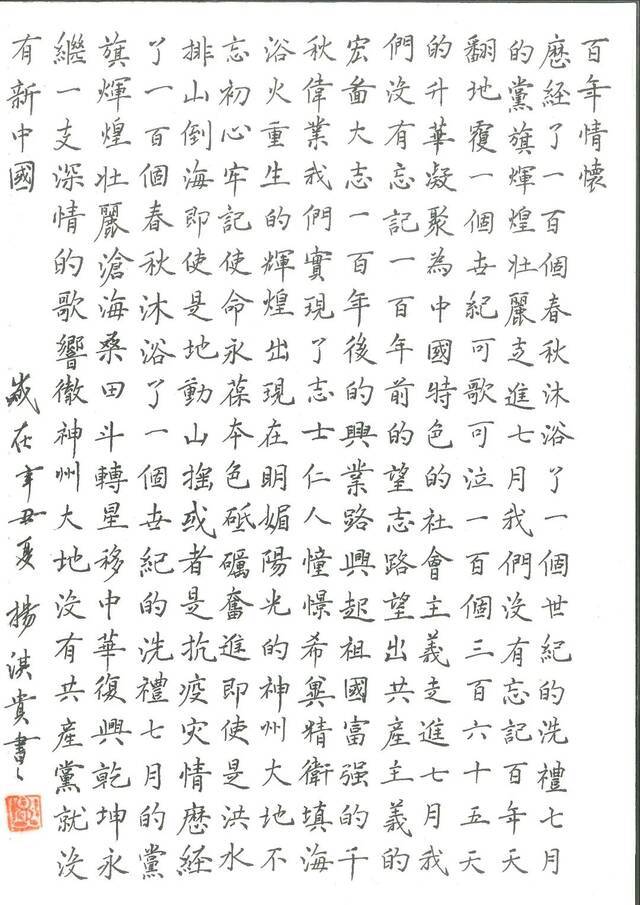 百年情懷
歷經了一百個春秋沐浴了一個世紀的洗禮七月
的黨旗輝煌壯麗走進七月我們没有忘記百年天
翻地覆一個世紀可歌可泣一百個三百六十五天
的升華凝聚為中國特色的社會主義走進七月我
們没有忘記一百年前的望志路望出共產主義的
宏啚大志一百年後的興業路興起祖國富强的千
秋偉業我們實現了志士仁人憧憬希兾精衛填海
浴火重生的輝煌出現在明媚陽光的神州大地不
忘初心牢記使命永葆本色砥礪奮進即使是洪水
排山倒海即使是地動山摇或者是抗疫灾情歷経
了一百個春秋沐浴了一個世紀的洗禮七月的黨
旗輝煌壯麗滄海桑田斗轉星移中華復興乾坤永
繼一支深情的歌響徹神州大地没有共產黨就没
有新中國
歲在辛丑夏楊淇貴書